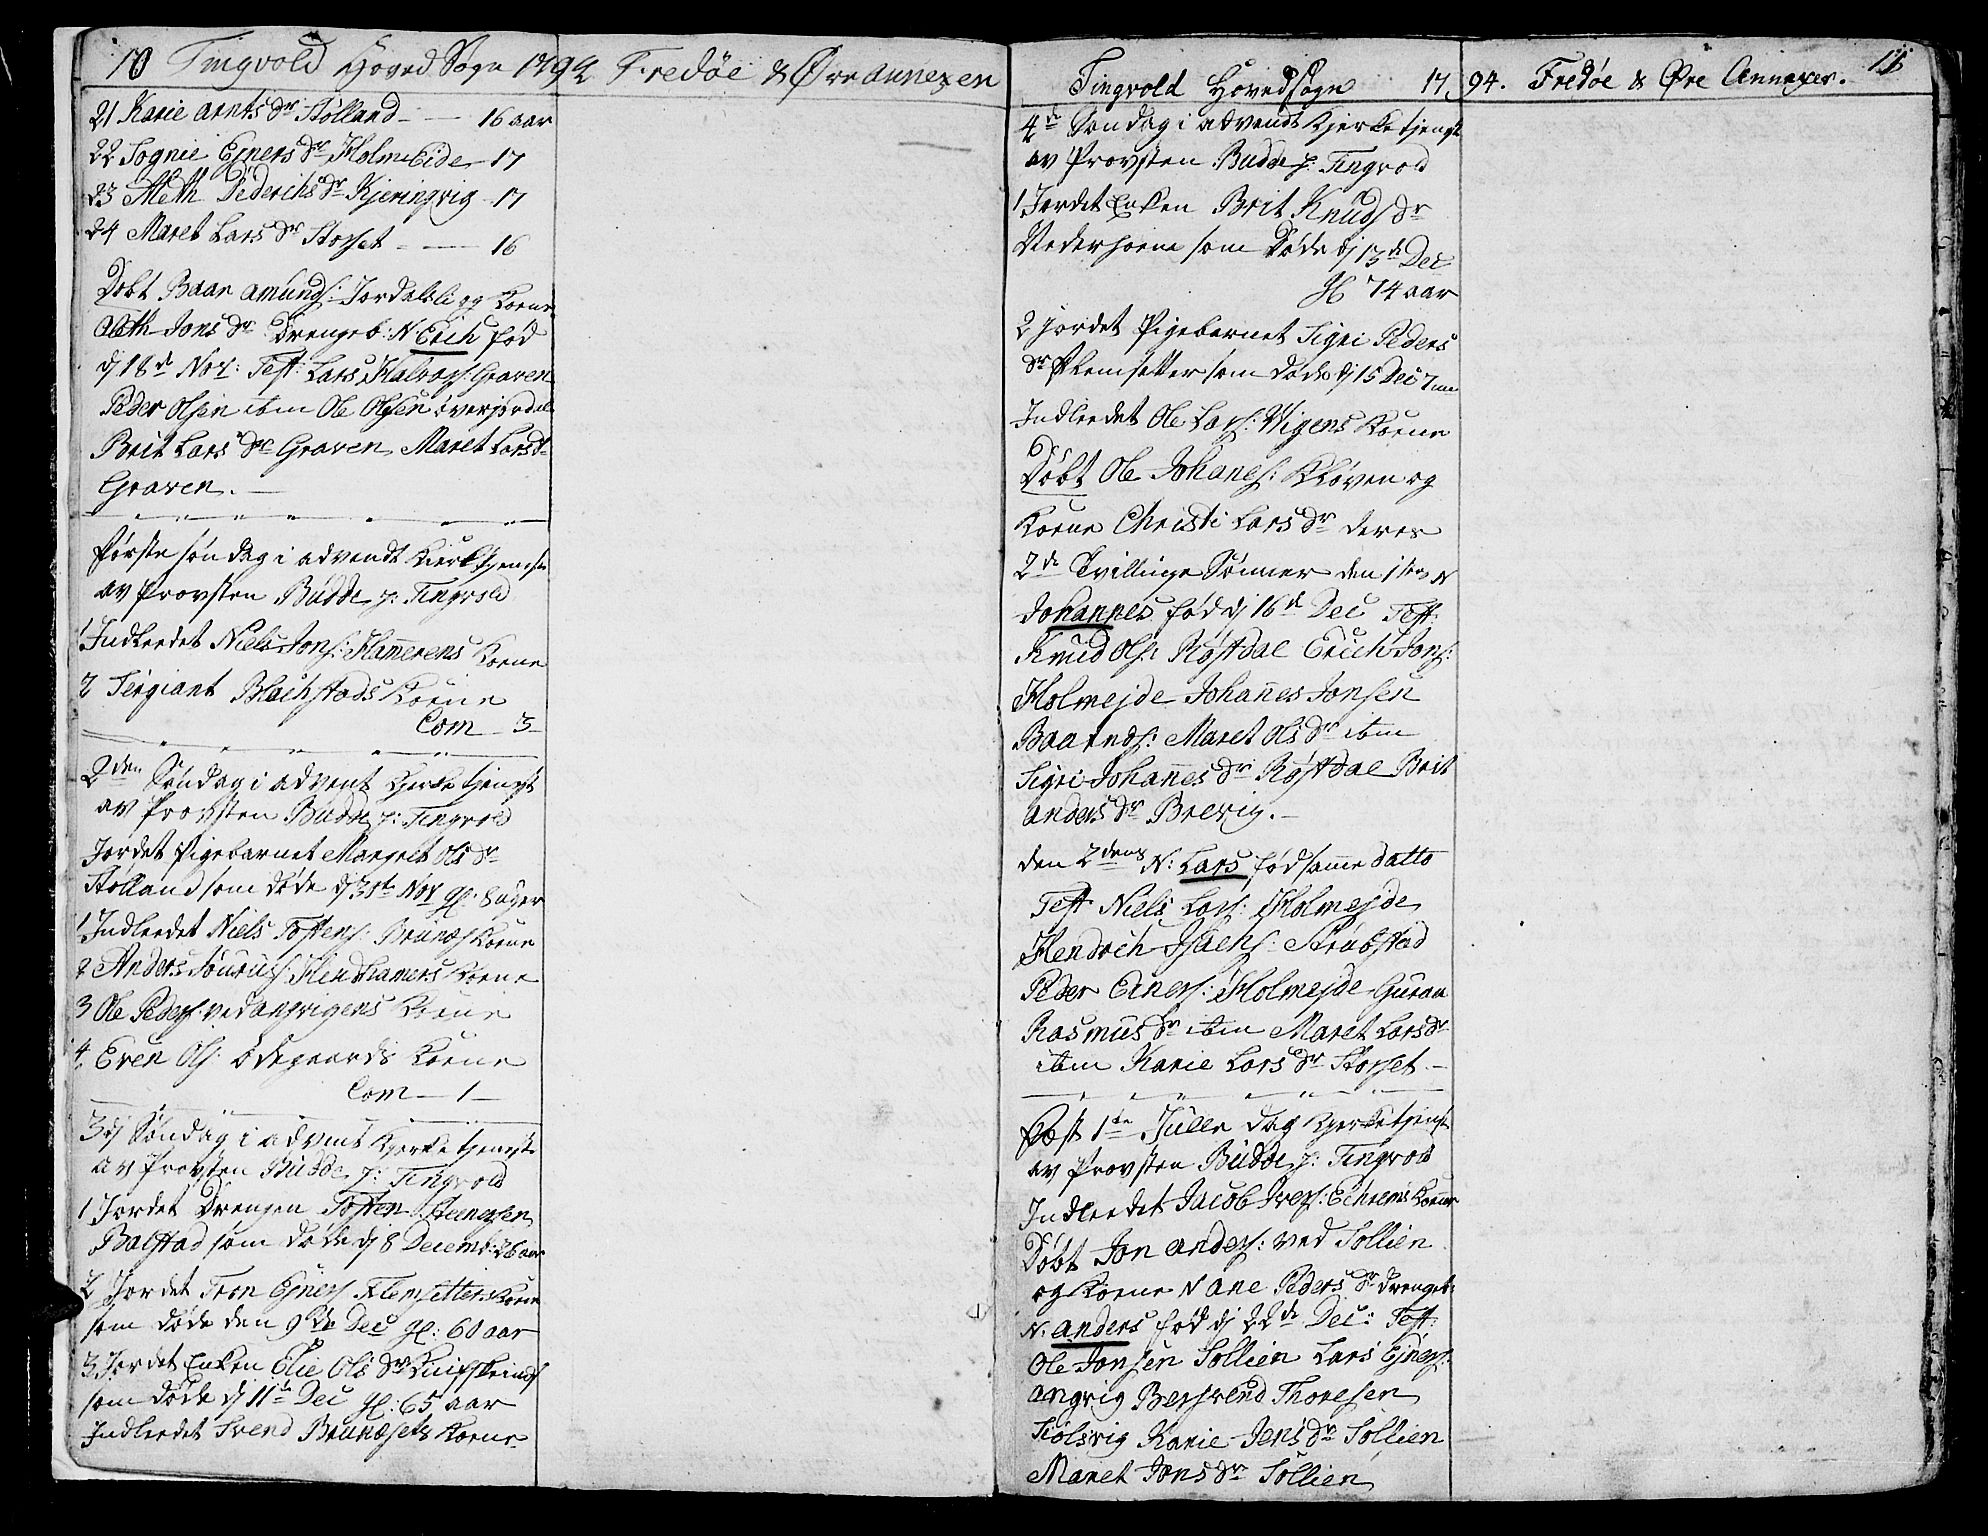 10 Tingvold Hoved Sogn 1794 Fredøe & Øre annexen
21 Karie Arnts Dr Stølland - 16 aar
22 Sognie Ejners Dr Holm Eide - 17
23 Meth Dederichs Dr Kjeringvig - 17
24 Maret Lars Dr Storset - 16
Døbt Baar Amunds: Jordalsli og Kone
Meth Jons Dr Drengeb: N: Erich fød
dj 18de Nov: Test: Lars Halvors: Graven
Peder Olsen ibm Ole Olsen Øverjordal
Brit Lars Dr Graven Maret Larsd
Graven.
Første søndag i advendt Kierketjeneste
av Provsten Budde j: Tingvold
1 Indleedet Niels Jons: Hamerens Kone
2 Sergiant Blachstads Kone
Com - 3 -
2den Søndag i advent Kjerketjenest
av Provsten Budde j: Tingvold
Jordet Pigebarnet Margret Ols Dr
Stølland som døde dj 31te Nov gl: 8 uger
1 Indleedet Niels Tostens: Brunæs Kone
2 Anders Hendhamers Kone
3 Ole Peders: ved angvigens Kone
4 Even Ols: Ødegaards Kone
Com - 1 -
3dj Søndag i advent Kjerketjeneste
av Provsten Budde j: Tingvold
1 Jordet Drengen Tosten Steenersen
Bolstad som døde dj 8 Decemb: 26 aar
2 Jordet Tron Ejners Flemsetters Kone
som døde den 9de Dec gl: 60 aar
3 Jordet Enken Elie Ols Dr
som døde dj 11te Dec gl: 65 aar
Indleedet Svend Brunæsets Kone
Tingvold Hovedsogn 1794. Fredøe & Øre Annexer. 11
4de Søndag i advendt Kjerketjenest
av Provsten Budde j: Tingvold
1 Jordet Enken Brit Knuds Dr
som døde dj 13de Dec
gl 74 aar
2 Jordet Pigebarnet Sigri Peders
Dr Flemsetter som døde dj 15 Dec 7
Indleedet Ole Lars: Wigens Kone
Døbt Ole Johanes: Kløven og
Kone Christi Lars Dr deres
2de Tvillinge Sønner den 1stes N
Johannes fød dj 16de Dec Test:
Knud Ols: Røstdal Erich Jons:
Holmejde Johanes Jonsen
Baarnds: Maret Ols Dr ibm
Sigri Johannes Dr Røstdal Brit
anders Dr Brevig.
den 2dens N: Lars fød same datto
Test Niels Lars: Holmejde
Hendrich Isachs: Strubstad
Peder Einers: Holmejde Guran
Rasmus Dr ibm Maret Lars Dr
ibm Karie Lars Dr Storset
Fæst 1te Julle dag Kjerketjenest
av Provsten Budde j: Tingvold
Indleedet Jacob Ivers: Eehrems Kone
Døbt Jon anders: ved Sollien
og Kone N ane Peders Dr Drengeb:
N: anders fød dj 22de Dec: Test:
Ole Jonsen Sollien Lars Ejners:
angvig Bersvend Thoresen
Holsvig Karie Jens Dr Sollien
Maret Jons Dr Sollien